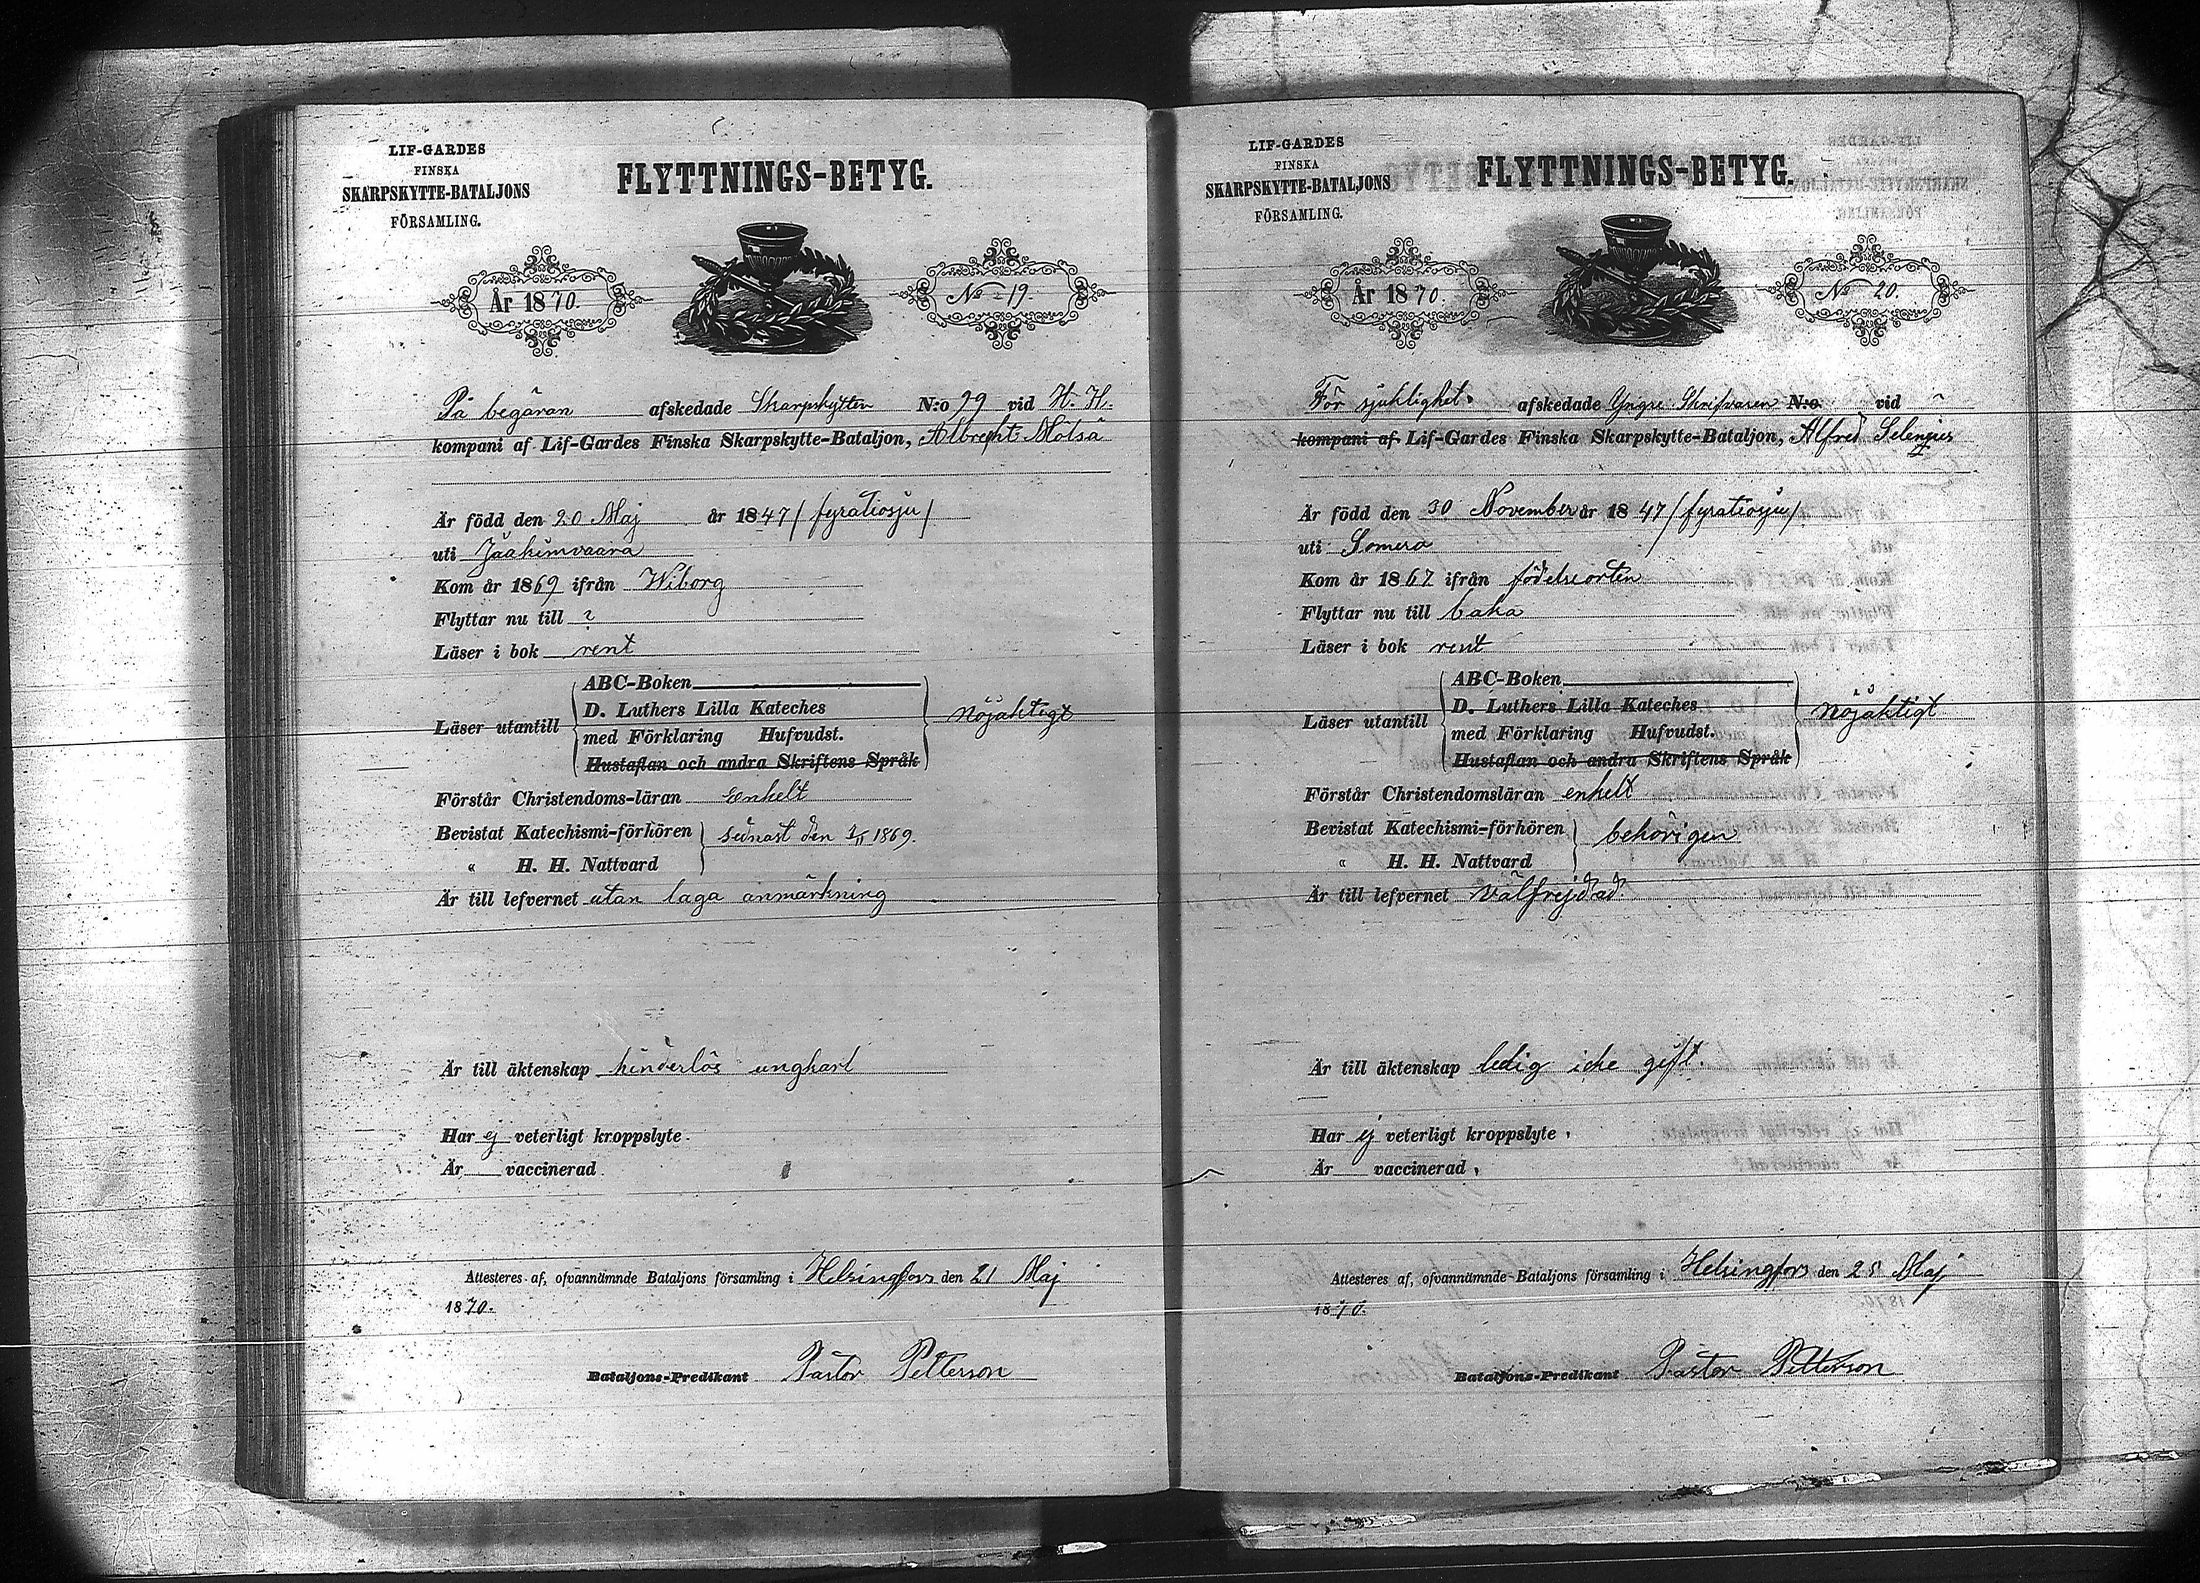 LIF-GARDES
FINSKA
SKARPSKYTTE-BATALJONS
FÖRSAMLING.
FLYTTNINGS-BETYG.
År 1870.
No 19.
På begäran afskedade Skarpskytten N:o 99 vid H. H.
kompani af Lif-Gardes Finska Skarpskytte-Bataljon, Albrecht Mölsä
Är född den 20 Maj år 1847 / fyratiosju /
uti Jäakimvaara
Kom år 1869 ifrån Wiborg
Flyttar nu till ?
Läser i bok rent
Läser utantill
ABC-Boken
D. Luthers Lilla Kateches
med Förklaring Hufvudst.
Hustaflan och andra Skriftens Språk
nöjaktigt
Förstår Christendoms-läran enkelt
Bevistat Katechismi-förhören
« H. H. Nattvard
senast den 1869.
Är till lefvernet utan laga anmärkning
Är till äktenskap hinderlös ungkarl
Har ej veterligt kroppslyte.
Är vaccinerad
Attesteres af, ofvannämnde Bataljons församling i Helsingfors den 21 Maj
1870.
Bataljons-Predikant Pastor Petterson
LIF-GARDES
FINSKA
SKARPSKYTTE-BATALJONS
FÖRSAMLING.
FLYTTNINGS-BETYG.
År 1870.
No 20.
För sjuklighet afskedade Yngre Skrifvaren N:o vid
kompani af Lif-Gardes Finska Skarpskytte-Bataljon, Alfred Selenius
Är född den 30 November år 1847 / fyratiosju /
uti Somero
Kom år 1867 ifrån födelseorten
Flyttar nu till baka
Läser i bok rent
Läser utantill
ABC-Boken
D. Luthers Lilla Kateches
med Förklaring Hufvudst.
Hustaflan och andra Skriftens Språk
nöjaktigt
Förstår Christendomsläran enkelt
Bevistat Katechismi-förhören
« H. H. Nattvard
behörigen
Är till lefvernet välfrejdad
Är till äktenskap ledig icke gift.
Har ej veterligt kroppslyte.
Är vaccinerad.
Attesteres af, ofvannämnde Bataljons församling i Helsingfors den 25 Maj
1870.
Bataljons-Predikant Pastor Petterson